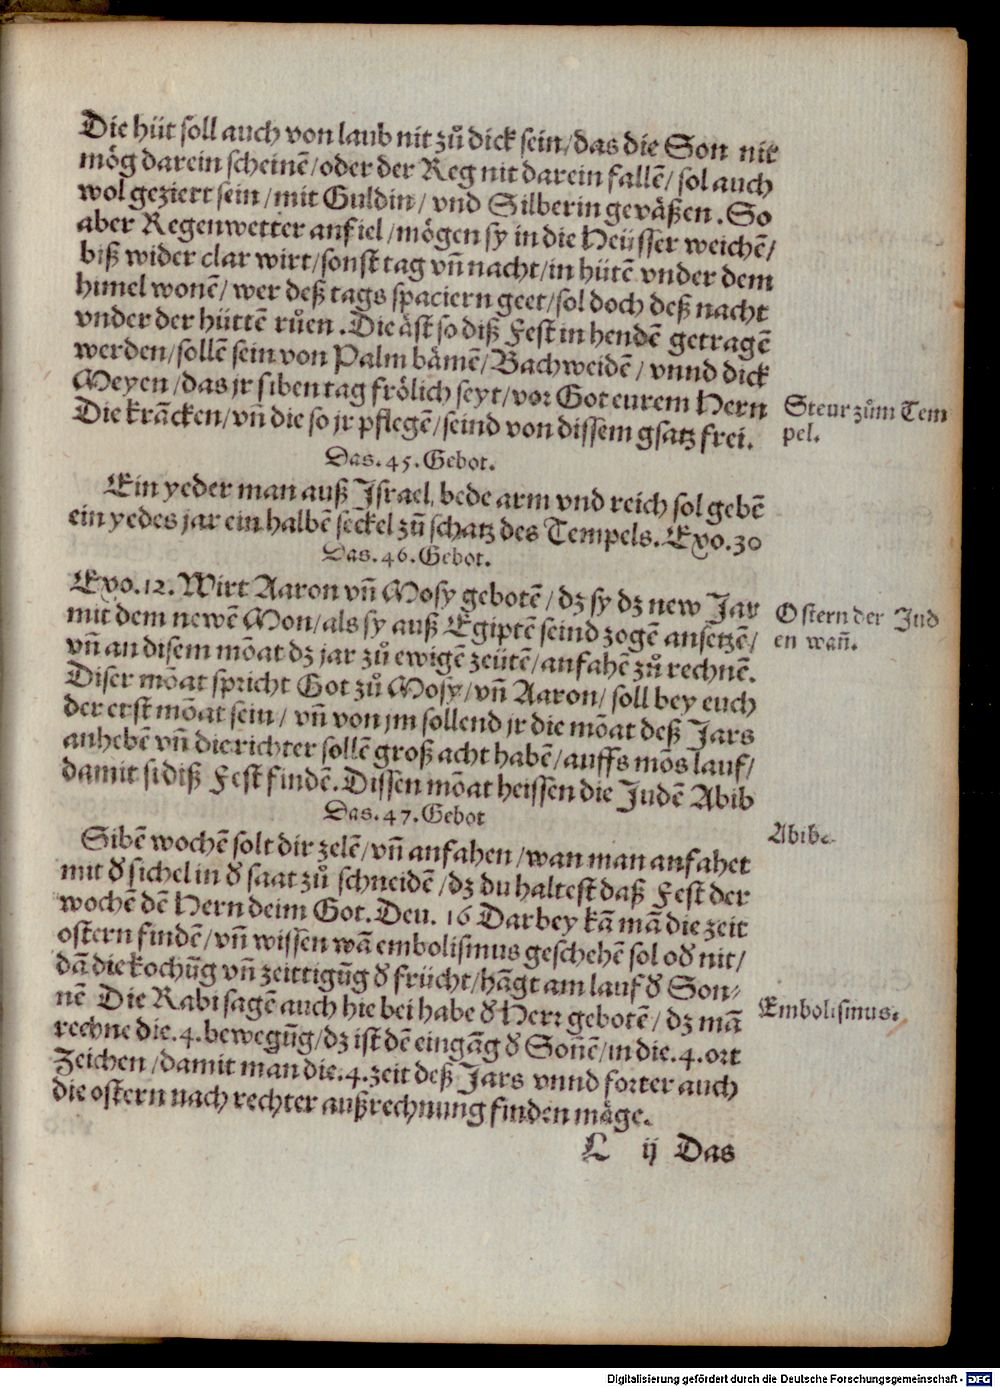 Die hüt soll auch von laub nit zů dick sein/das die Son nit
mög darein scheinē/oder der Reg nit darein fallē/ sol auch
wol geziert sein/mit Guldin/ vnd Silberin gevåßen. So
aber Regenwetter anfiel/mögen sy in die Heüsser weichē/
biß wider clar wirt/sonst tag vn̄ nacht/in hütē vnder dem
himel wonē/ wer deß tags spaciern geet/sol doch deß nacht
vnder der hüttē růen. Die åst so diß Fest in hendē getragē
werden/sollē sein von Palm båmē/Bachweidē/ vnnd dick
Meyen/das jr siben tag frölich seyt/vor Got eurem Hern
Die krācken/vn̄ die so jr pflegē/seind von dissem gsatz frei.
Steur zům Tem
pel.
Das. 45. Gebot.
Ein yeder man auß Israel, bede arm vnd reich sol gebē
ein yedes jar ein halbē seckel zů schatz des Tempels. Exo. 30
Das. 46. Gebot.
Exo. 12. Wirt Aaron vn̄ Mosy gebotē/ dz sy dz new Jar
mit dem newē Mon/als sy auß Egiptē seind zogē ansetzē/
vn̄ an disem mōat dz jar zů ewigē zeütē/anfahē zů rechnē.
Diser mōat spricht Got zů Mosy/vn̄ Aaron/ soll bey euch
der erst mōat sein/ vn̄ von jm sollend jr die mōat deß Jars
anhebē vn̄ die richter sollē groß acht habē/auffs mōs lauf/
damit si diß Fest findē. Dissen mōat heissen die Judē Abib
Ostern der Jud
en wan̄.
Das. 47. Gebot
Abib.
Sibē wochē solt dir zelē/vn̄ anfahen/wan man anfahet
mit d̄ sichel in d̄ saat zů schneidē/dz du haltest daß Fest der
wochē dē Hern deim Got. Deu. 16 Darbey kā mā die zeit
ostern findē/vn̄ wissen wā embolismus geschehē sol od̄ nit/
dā die kochūg vn̄ zeittigūg d̄ frücht/hāgt am lauf d̄ Son⸗
nē Die Rabi sagē auch hie bei habe d̄ Herr gebotē/ dz mā
rechne die. 4. bewegūg/dz ist dē eingāg d̄ Son̄ē/in die. 4. ort
Zeichen/damit man die. 4. zeit deß Jars vnnd forter auch
die ostern nach rechter außrechnung finden måge.
Embolismus.
L ij Das
Digitalisierung gefördert durch die Deutsche Forschungsgemeinschaft - DFG